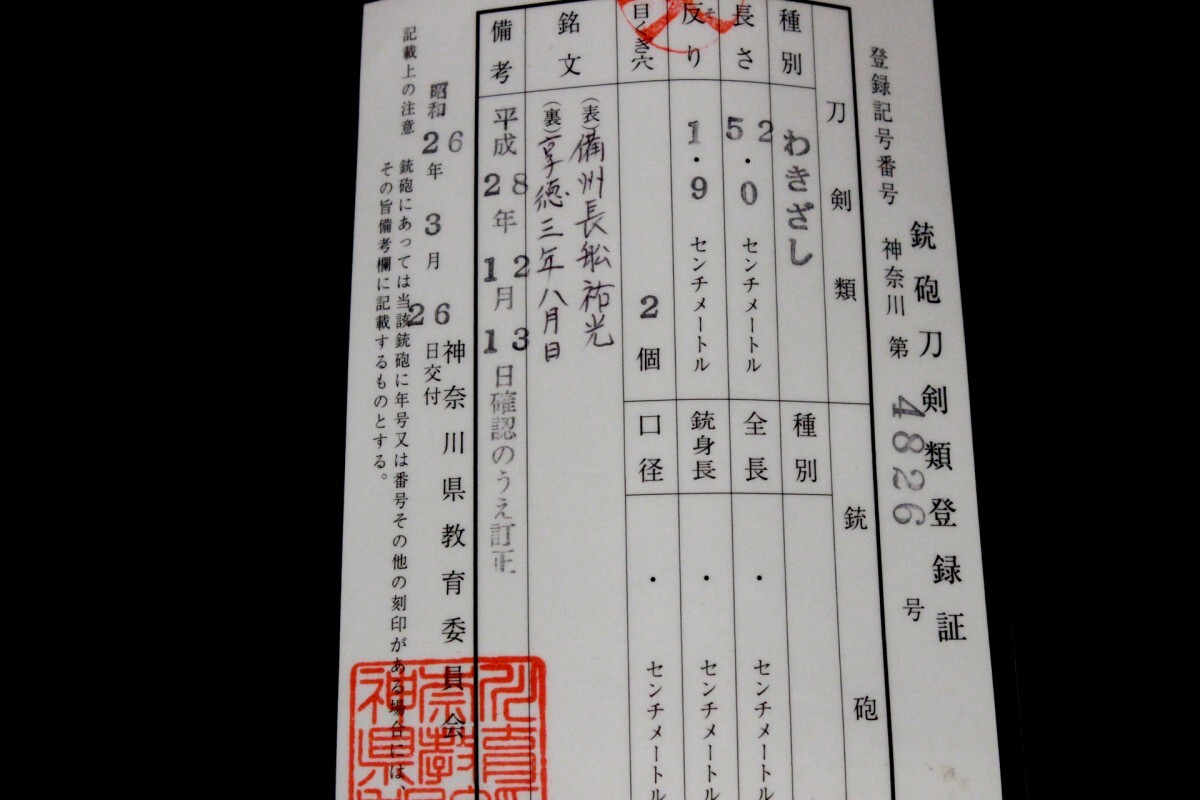 銃砲刀剣類登録証
登録記号番号 神奈川 第 4826 号
刀剣類
種別 わきざし
長さ 52.0 センチメートル
反り 1.9 センチメートル
目くぎ穴 2個
銘文 (表)備州長船祐光
(裏)享徳三年八月日
銃砲
種別
全長 ・ センチメートル
銃身長 ・ センチメートル
口径 ・ センチメートル
備考 平成28年12月13日確認のうえ訂正
神奈川県教育委員会
昭和26年3月26日交付
記載上の注意 銃砲にあっては当該銃砲に年号又は番号その他の刻印がある場合には、
その旨備考欄に記載するものとする。